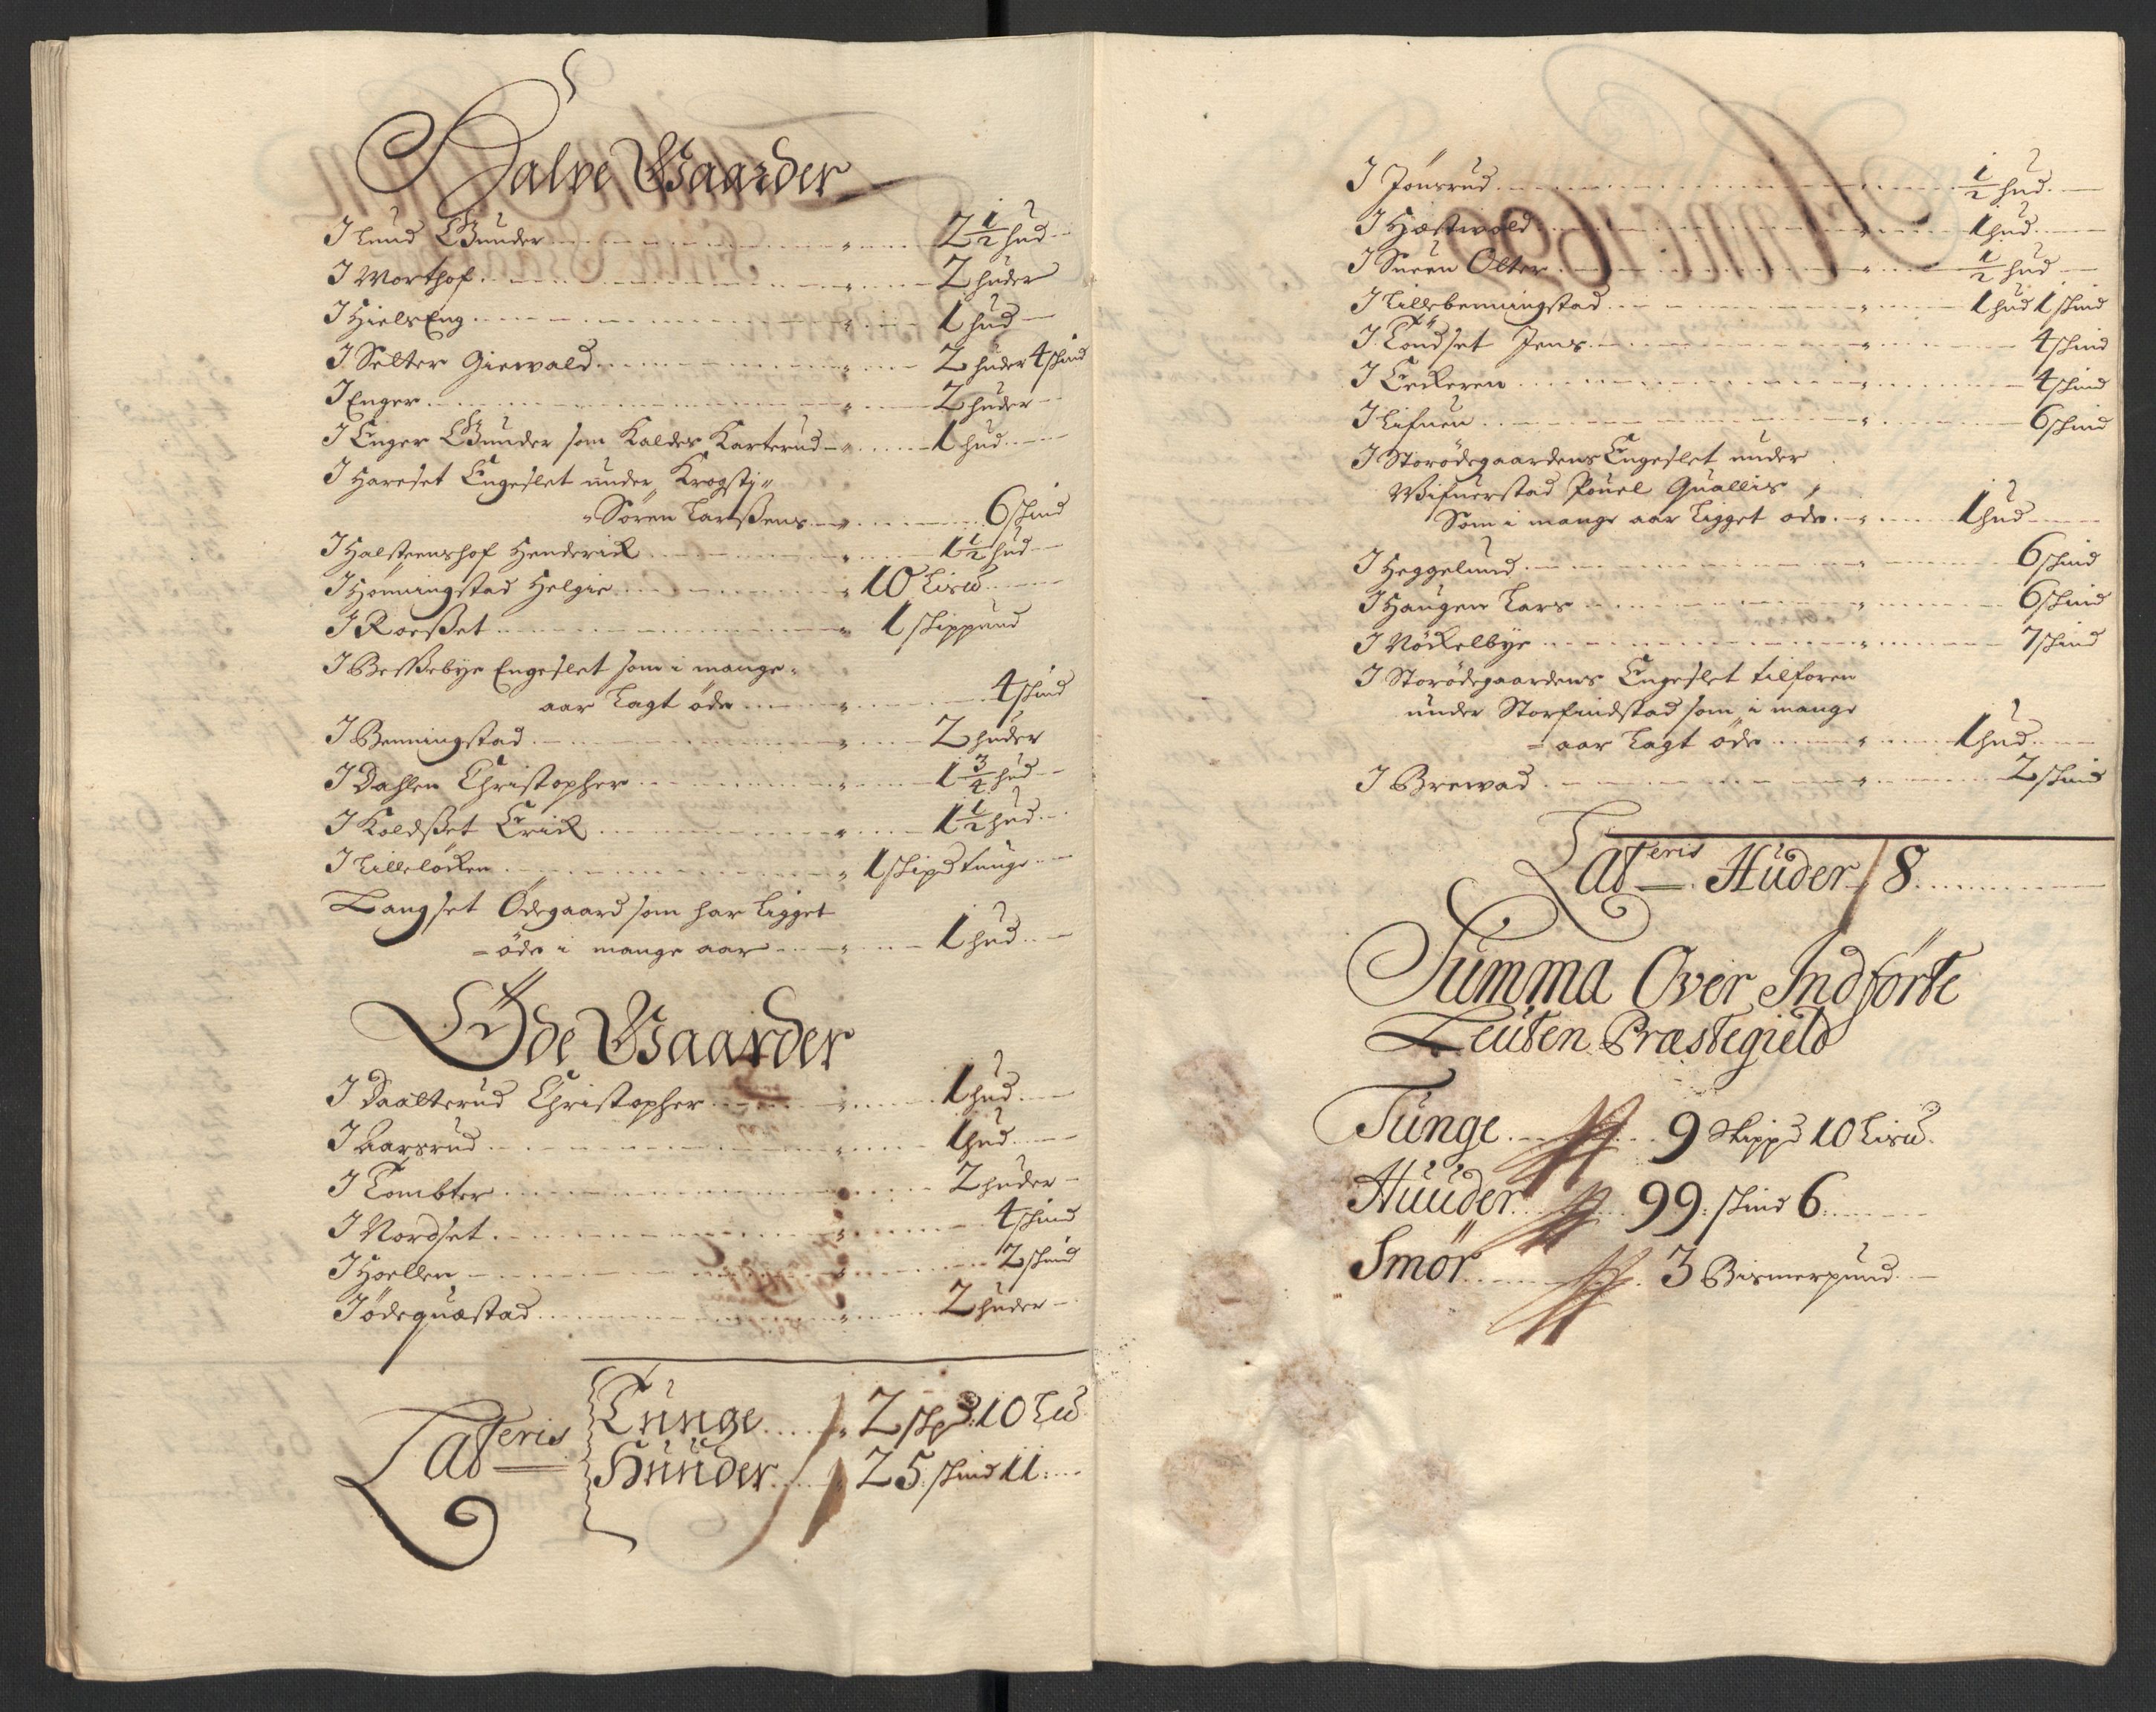 Halve Gaarder
I Lund Gunder 2 1/2 hud
I Worthof 2 huder
I Hiels Eng 1 hud
I Selter Giewald 2 huder 4 skind
I Enger 2 huder
I Enger Gunder som Kaldes Karterud 1 hud
I Hareset Engeslet under Krogsti
Sören Larssens 6 skind
I Halsteenshof Henderick 1 1/2 hud
I Hörningstad Helgie 10 Lis℔
I Roesset 1 skippund
I Bessebye Engeslet som i mange
aar Lagt öde 4 skind
I Benningstad 2 huder
I Dahlen Christopher 1 3/4 hud
I Koldset Erick 1 1/2 hud
I Lillelöcken 1 skipd tunge
Langset Ödegaard som har Ligget
öde i mange aar 1 hud
Öde Gaarder
I Daalterud Christopher 1 hud
I Aarsrud 1 hud
I Tombter 2 huder
I Nordset 4 skind
I Hoellen 2 skind
I ödequæstad 2 huder
Lateris
Tunge 2 skpd: 10 L℔
Huuder 25: skind 11:
I Jönsrud 1/2 hud
I Hæstwold 1 hud
I Sueen Olter 1/2 hud
I Lillebenningstad 1 hud 1 skind
I Töndset Jens 4 skind
I Leckeren 4 skind
I Lifuen 6 skind
I Storödegaardens Engeslet under
Wifuerstad Pouel Quallis
Som i mange aar Ligget öde 1 hud
I Heggelund 6 skind
I Haugen Lars 6 skind
I Nöckelbye 7 skind
I Storödegaardens Engeslet tilforen
under Storfindstad som i mange
aar Lagt öde 1 hud
I Brewad 2 skind
Lateris Huder 8
Summa Over Indförte
Leuten Præstegield
Tunge 9 Skippd 10 Lis℔
Huuder 99: skind 6:
Smör 3 Bismerpund